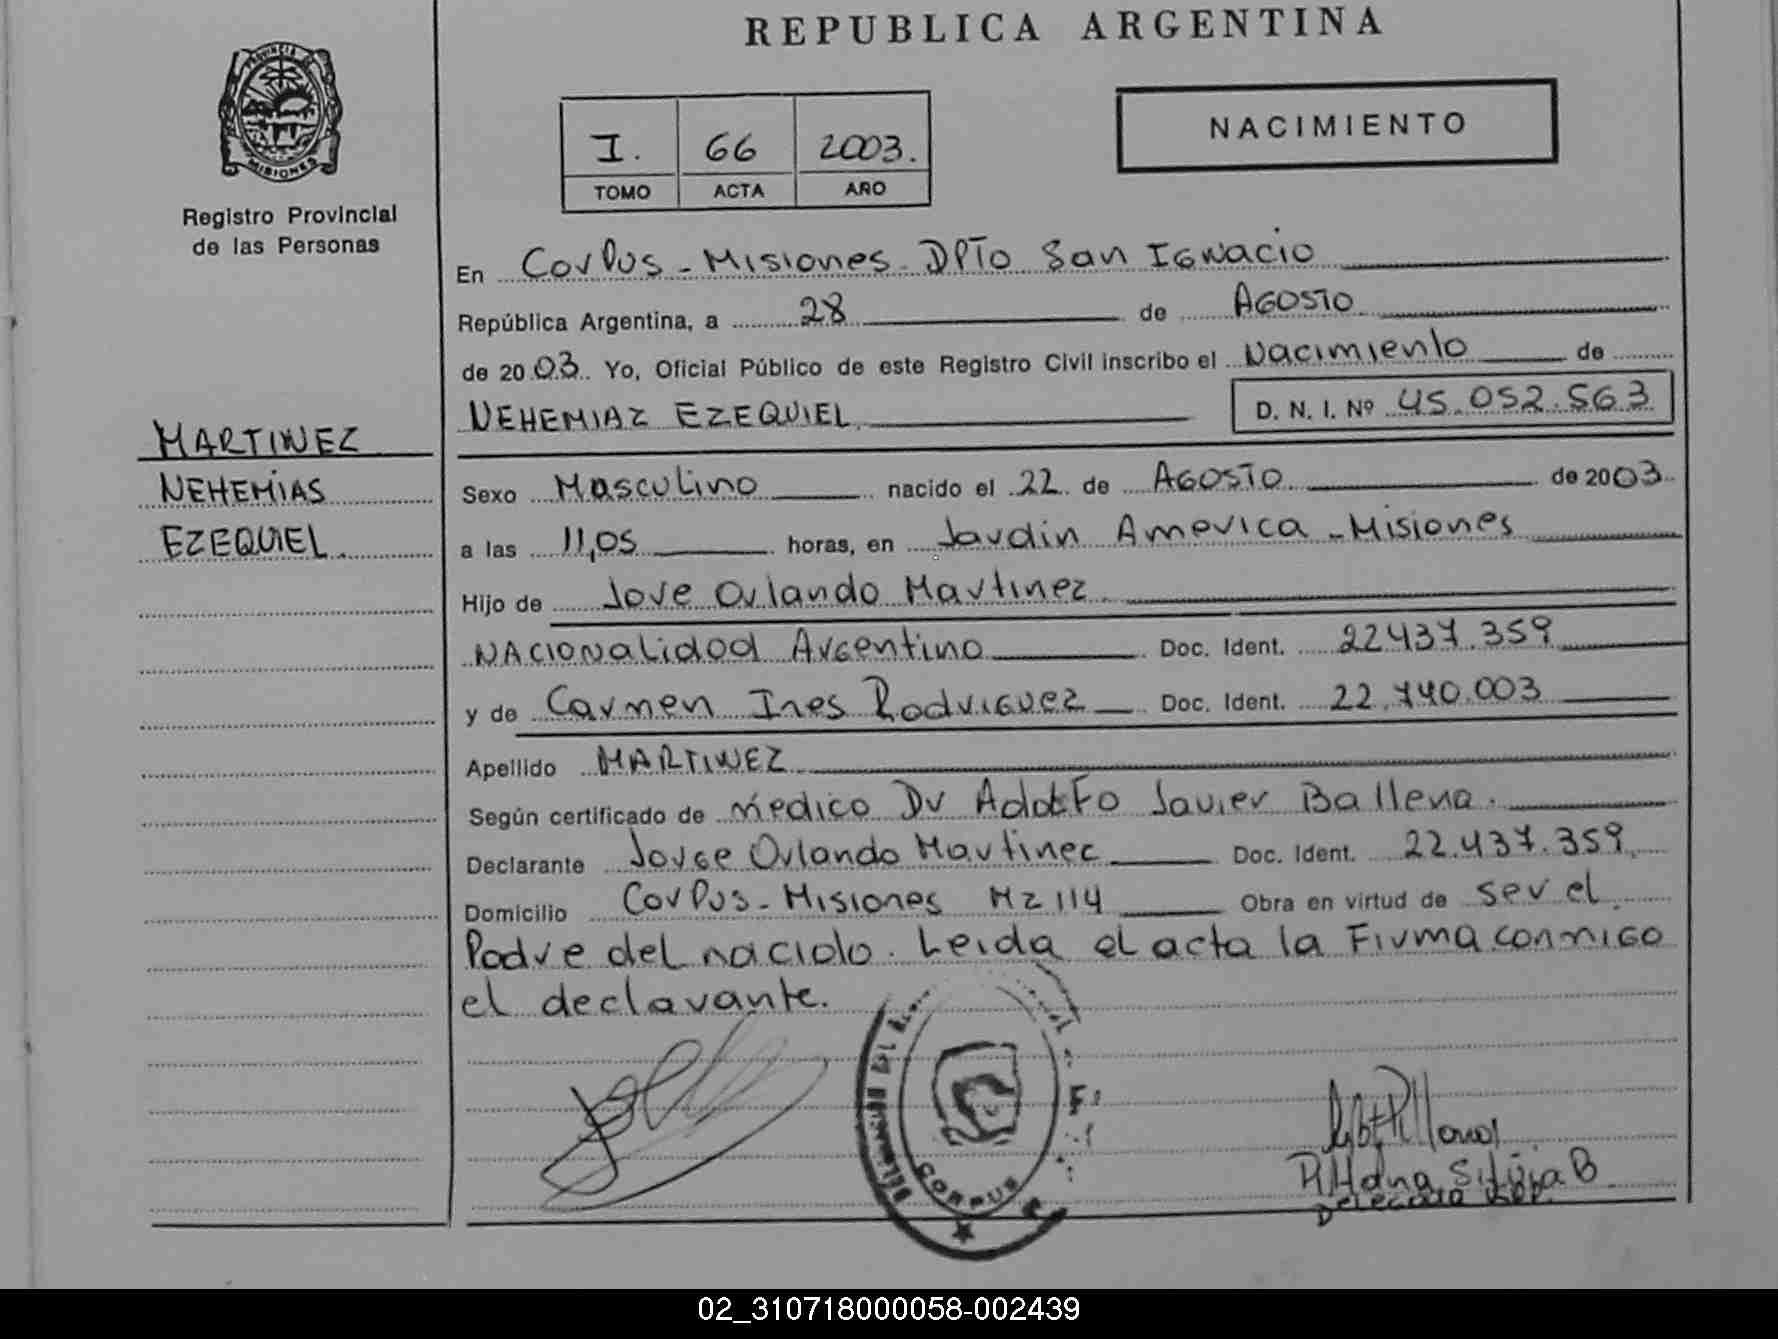 REPUBLICA ARGENTINA
PROVINCIA DE
MISIONES
Registro Provincial
de las Personas
I. 66 2003.
TOMO ACTA AÑO
NACIMIENTO
En Corpus - Misiones - DPTo San Ignacio
República Argentina, a 28 de AGOSTO
de 2003. Yo, Oficial Público de este Registro Civil inscribo el Nacimiento de
NEHEMIAZ EZEQUIEL D. N. I. Nº 45.052.563
MARTINEZ
NEHEMIAS
EZEQUIEL
Sexo Masculino nacido el 22 de AGOSTO de 2003
a las 11,05 horas, en Jardin America - Misiones
Hijo de Jorge Orlando Martinez
NAcionalidad Argentino Doc. Ident. 22437.359
y de Carmen Ines Rodriguez Doc. Ident. 22.740.003
Apellido MARTINEZ
Según certificado de medico Dr Adolfo Javier Ballena.
Declarante Jorge Orlando Martinez Doc. Ident. 22.437.359
Domicilio Corpus - Misiones Mz 114 Obra en virtud de ser el
Padre del nacido. Leida el acta la Firma conmigo
el declarante.
CORPUS
02_310718000058-002439